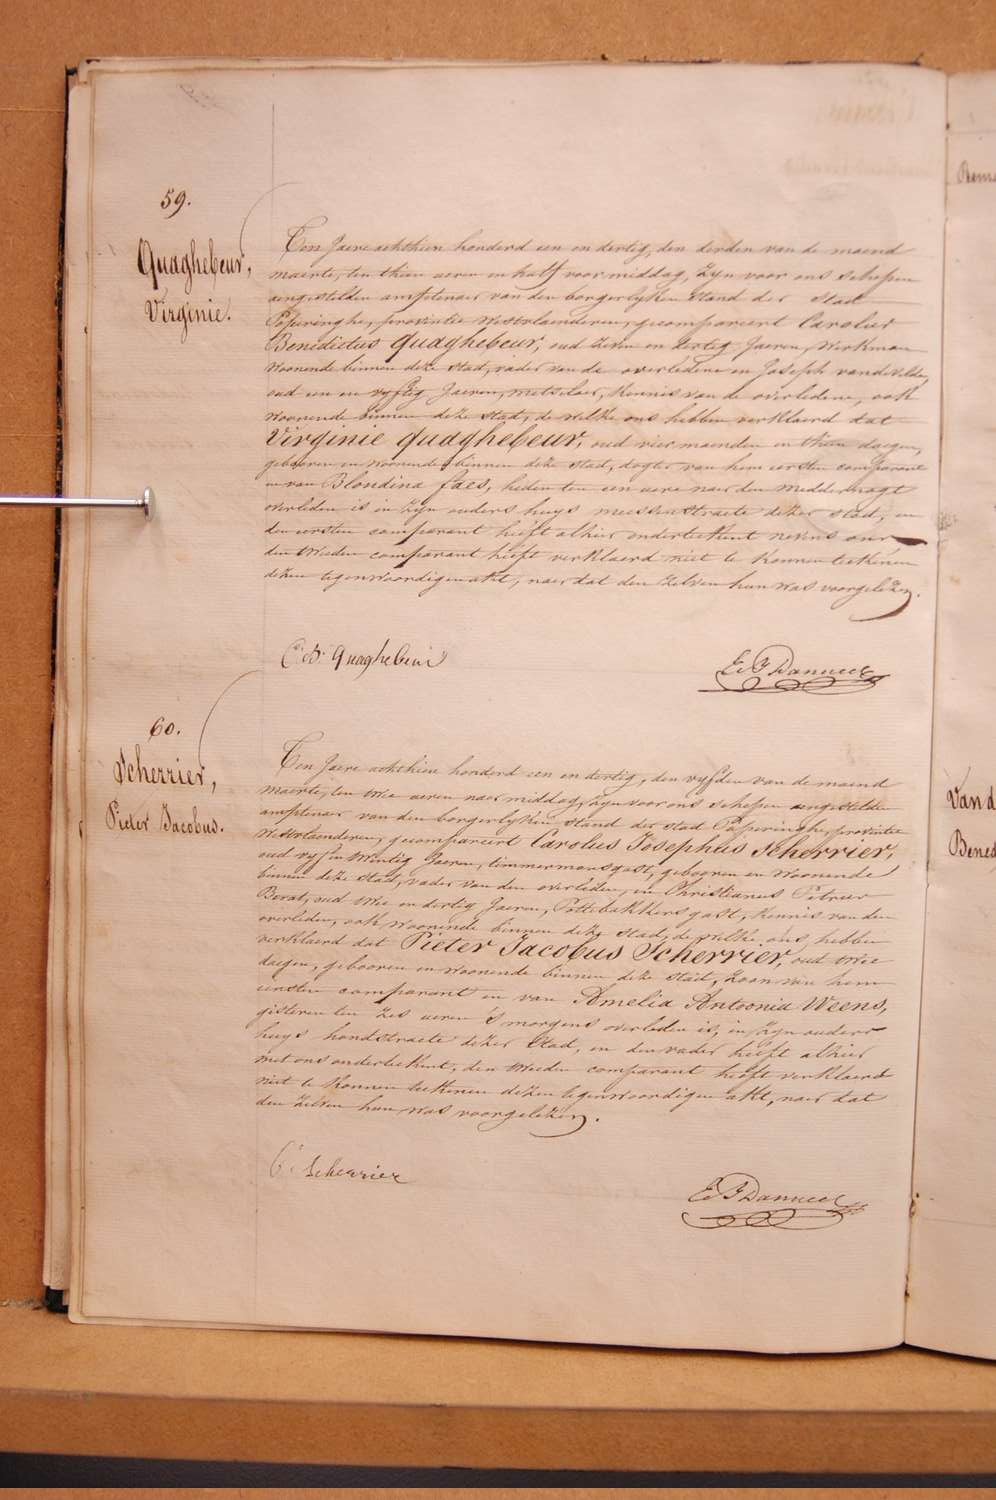 59.
Quaghebeur,
Virginie.
Ten Jaere achthien honderd een en dertig, den derden van de maend
maerte, ten thien ueren en half voormiddag, Zyn voor ons schepen
aengestelden amptenaer van den borgerlyken stand der Stad
Poperinghe, provintie Westvlaenderen, gecompareert Carolus
Benedictus Quaghebeur, oud zeven en dertig Jaeren, Werkman
woonende binnen deze stad, vader van de overledene en Joseph vandevelde,
oud een en vyftig Jaeren, metselaer, Kennis van de overledene, ook
woonende binnen deze stad, de welke ons hebben verklaerd dat
Virginie quaghebeur, oud vier maenden en thien daegen,
gebooren en woonende binnen deze stad, dogter van hem eersten comparant
en van Blondina faes, heden ten een uere naer den middernagt
overleden is in zyn ouders huys meessenstraete dezer stad, en
den eersten comparant heeft alhier onderteekent nevens ons
den tweeden comparant heeft verklaerd niet te konnen teekenen
dezen tegenwoordigen akt, naer dat den zelven hun was voorgelezen.
C: B: Quaghebeur
60.
Scherrier,
Pieter Jacobus.
Ten Jaere achthien honderd een en dertig, den vyfden van de maend
maerte, ten twee ueren naermiddag, zyn voor ons schepen aengestelden
amptenaer van den borgerlyken stand der stad Poperinghe, provintie
Westvlaenderen, gecompareert Carolus Josephus Scherrier,
oud vyf en twintig Jaeren, timmermansgast, gebooren en woonende
binnen deze stad, vader van den overleden, en Christianus Petrus
oud twee en dertig Jaeren, Pottebakkersgast, Kennis van den
overleden, ook woonende binnen deze stad, de welke ons hebben
verklaerd dat Pieter Jacobus Scherrier, oud twee
daegen, gebooren en woonende binnen deze stad, zoon van hem
eersten comparant en van Amelia Antoonia Weens,
gisteren ten zes ueren 's morgens overleden is, in zyn ouders
huys hondstraete dezer stad, en den vader heeft alhier
met ons onderteekent, den tweeden comparant heeft verklaerd
niet te konnen teekenen dezen tegenwoordigen akt, naer dat
den zelven hun was voorgelezen.
C: Scherrier
Van d
Bened